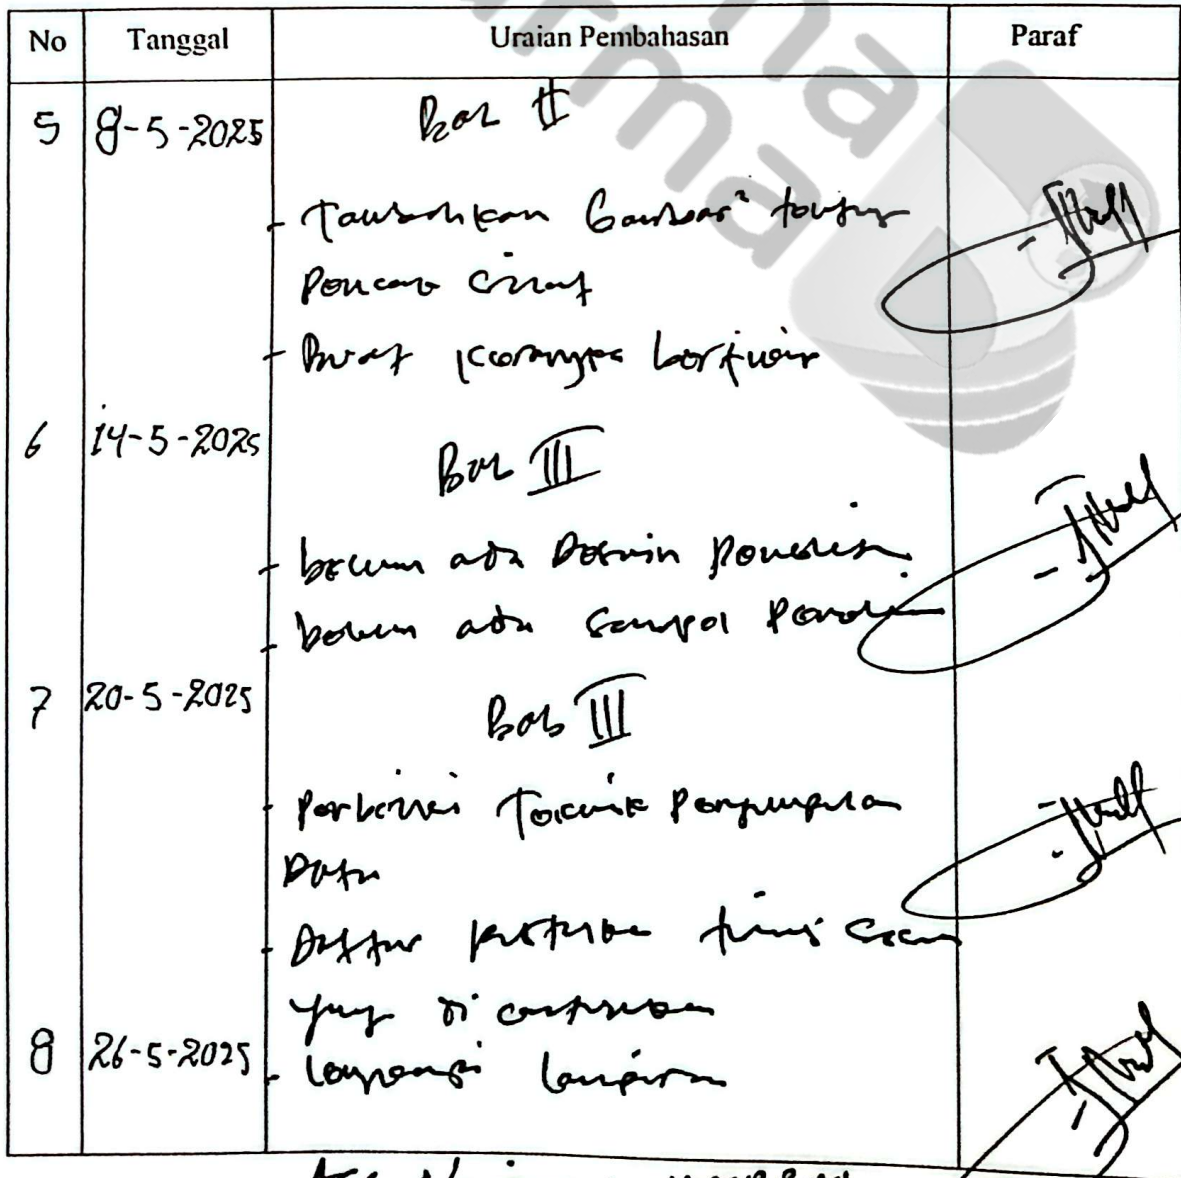 No Tanggal Uraian Pembahasan Paraf
5 8-5-2025 Bab II
- Tambahkan Gambar² 
- Buat Kerangka berfikir
6 14-5-2025 Bab III
- belum ada Desain Penelitian
- belum ada Sampel Penelitian
7 20-5-2025 Bab III
- Perbaiki Teknik Pengumpulan
Data
- Daftar pustaka
yang di
8 26-5-2025 - lengkapi lampiran